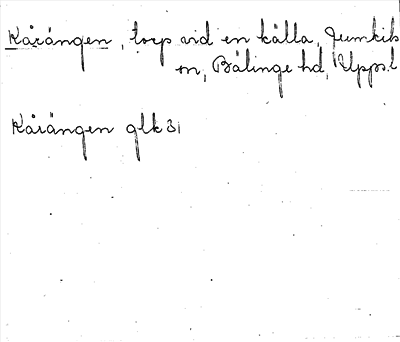 Kårängen, torp vid en källa, Jumkils
sn, Bälinge hd, Uppsl
Kårängen glk 31